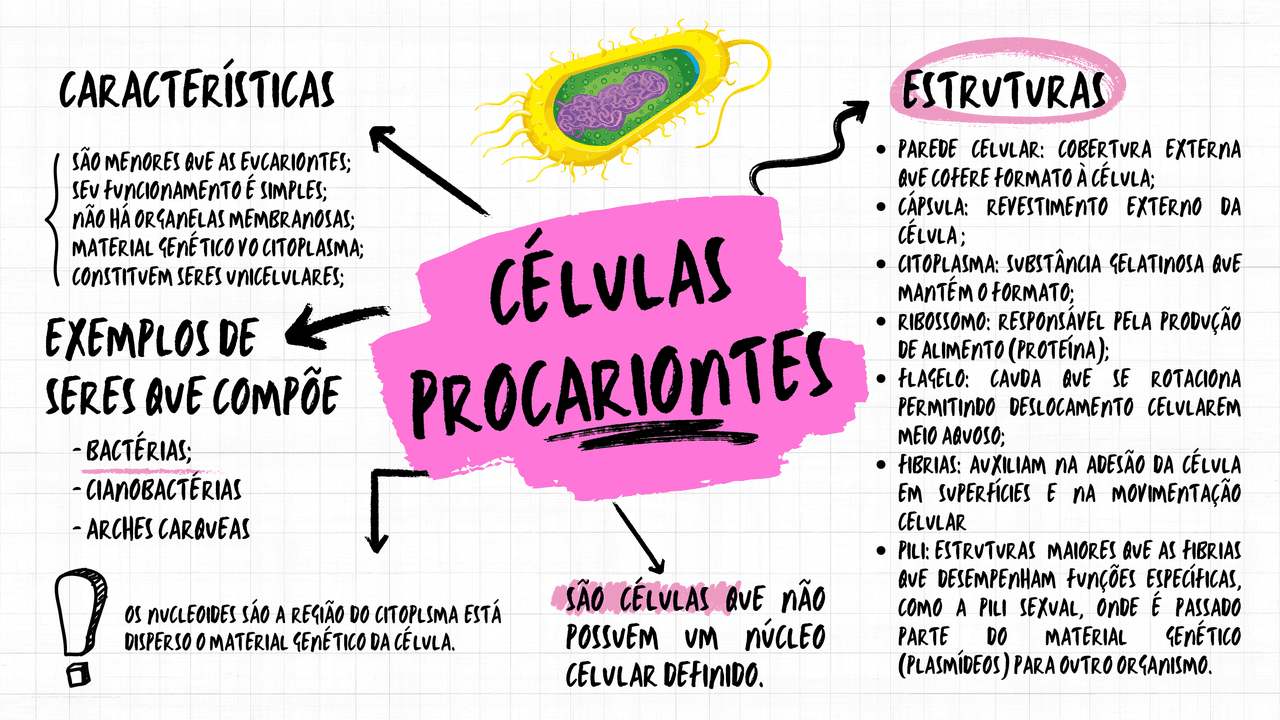 CARACTERÍSTICAS
SÃO MENORES QUE AS EUCARIONTES;
SEU FUNCIONAMENTO É SIMPLES;
NÃO HÁ ORGANELAS MEMBRANOSAS;
MATERIAL GENÉTICO VO CITOPLASMA;
CONSTITUEM SERES UNICELULARES;
EXEMPLOS DE
SERES QUE COMPÕE
- BACTÉRIAS;
- CIANOBACTÉRIAS
- ARCHES CARQUEAS
OS NUCLEOIDES SÁO A REGIÃO DO CITOPLSMA ESTÁ
DISPERSO O MATERIAL GENÉTICO DA CÉLULA.
CÉLULAS
PROCARIONTES
SÃO CÉLULAS QUE NÃO
POSSUEM UM NÚCLEO
CELULAR DEFINIDO.
ESTRUTURAS
• PAREDE CELULAR: COBERTURA EXTERNA
QUE COFERE FORMATO À CÉLULA;
• CÁPSULA: REVESTIMENTO EXTERNO DA
CÉLULA;
• CITOPLASMA: SUBSTÂNCIA GELATINOSA QUE
MANTÉM O FORMATO;
• RIBOSSOMO: RESPONSÁVEL PELA PRODUÇÃO
DE ALIMENTO (PROTEÍNA);
• FLAGELO: CAUDA QUE SE ROTACIONA
PERMITINDO DESLOCAMENTO CELULAREM
MEIO AQUOSO;
• FIBRIAS: AUXILIAM NA ADESÃO DA CÉLULA
EM SUPERFÍCIES E NA MOVIMENTAÇÃO
CELULAR
• PILI: ESTRUTURAS MAIORES QUE AS FIBRIAS
QUE DESEMPENHAM FUNÇÕES ESPECÍFICAS,
COMO A PILI SEXUAL, ONDE É PASSADO
PARTE DO MATERIAL GENÉTICO
(PLASMÍDEOS) PARA OUTRO ORGANISMO.